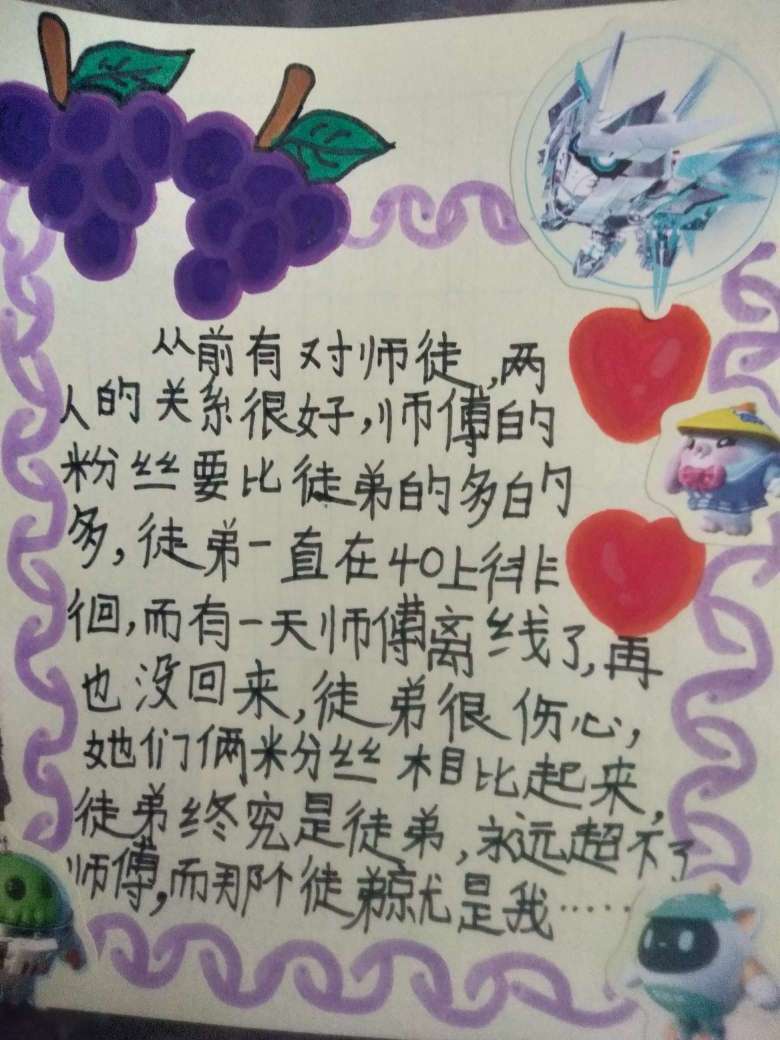 从前有对师徒,两
人的关系很好,师傅的
粉丝要比徒弟的多的
多,徒弟一直在40上徘
徊,而有一天师傅离线了,再
也没回来,徒弟很伤心,
她们俩粉丝相比起来,
徒弟终究是徒弟,永远超不了
师傅,而那个徒弟就是我……